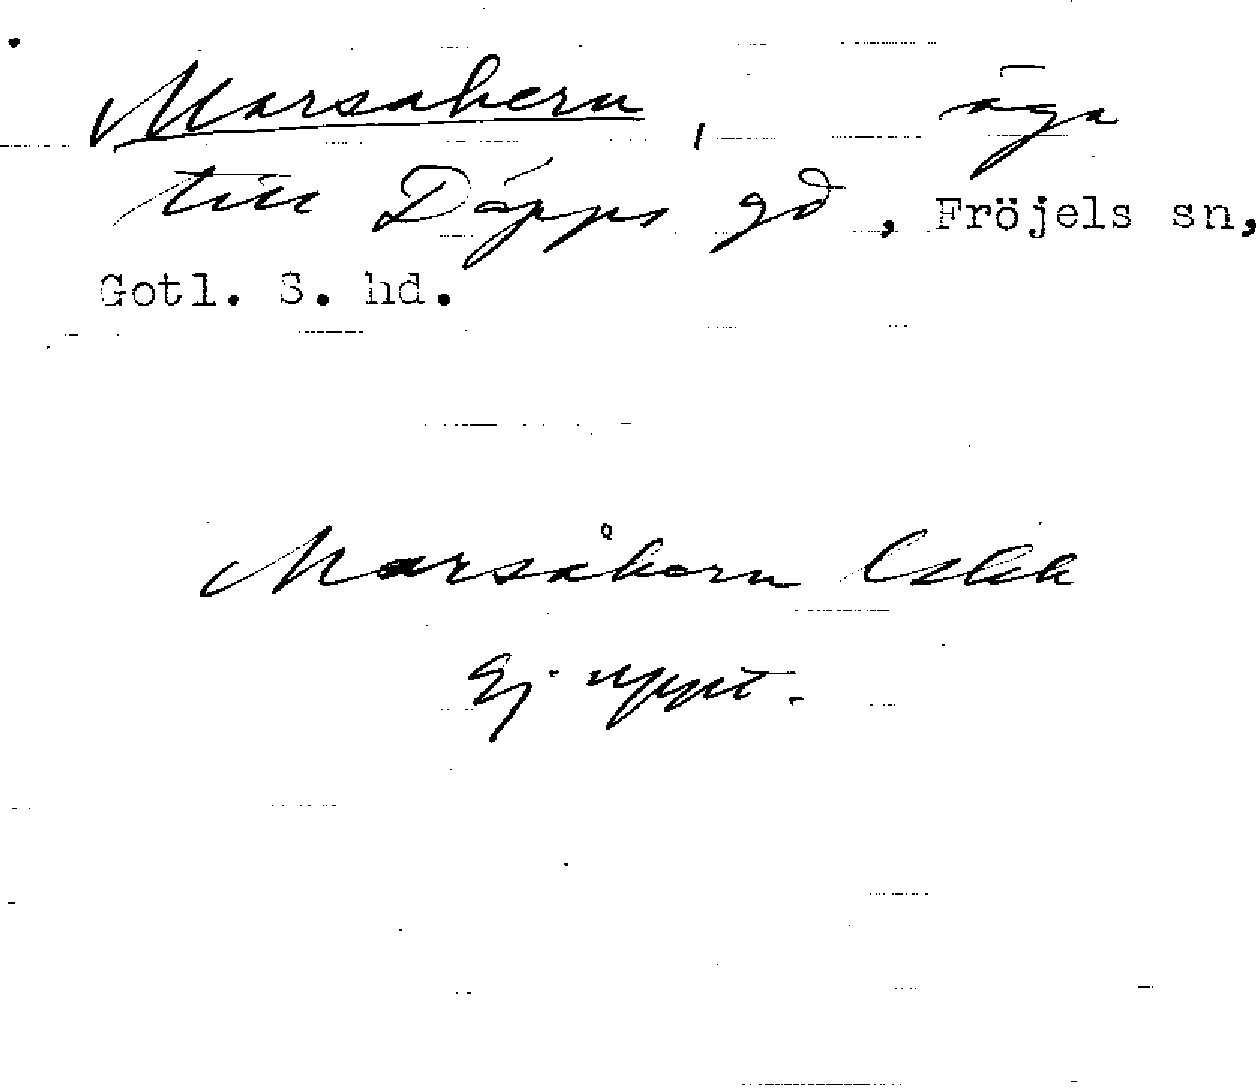 Marsakern, äga
till Däpps gd, Fröjels sn,
Gotl. S. hd.
Marsåkern
Ej uppt.